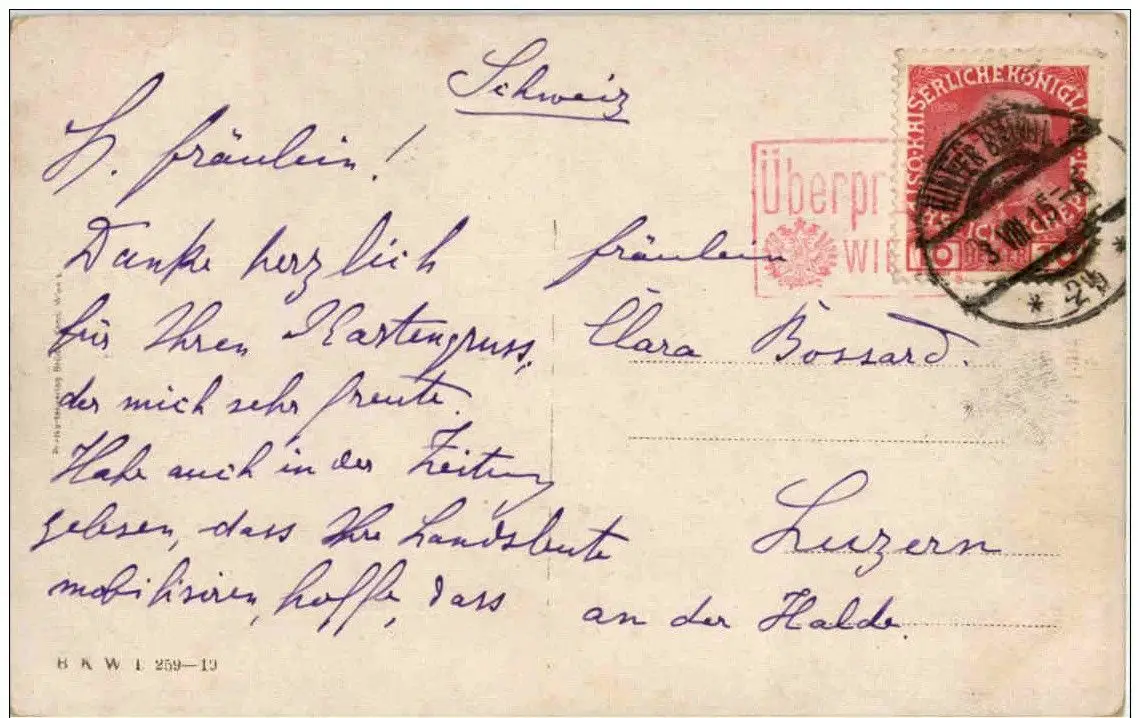 Schweiz
H. Fräulein!
Danke herzlich
für Ihren Kartengruss,
der mich sehr freute.
Habe auch in der Zeitung
gelesen, dass Ihre Landsleute
mobilisiren, hoffe, dass
Fräulein
Clara Bossard.
Luzern
an der Halde.
Überpr
WIE
KAISERLICHE KÖNIGL
3 VIII 15
B K W I 259—19